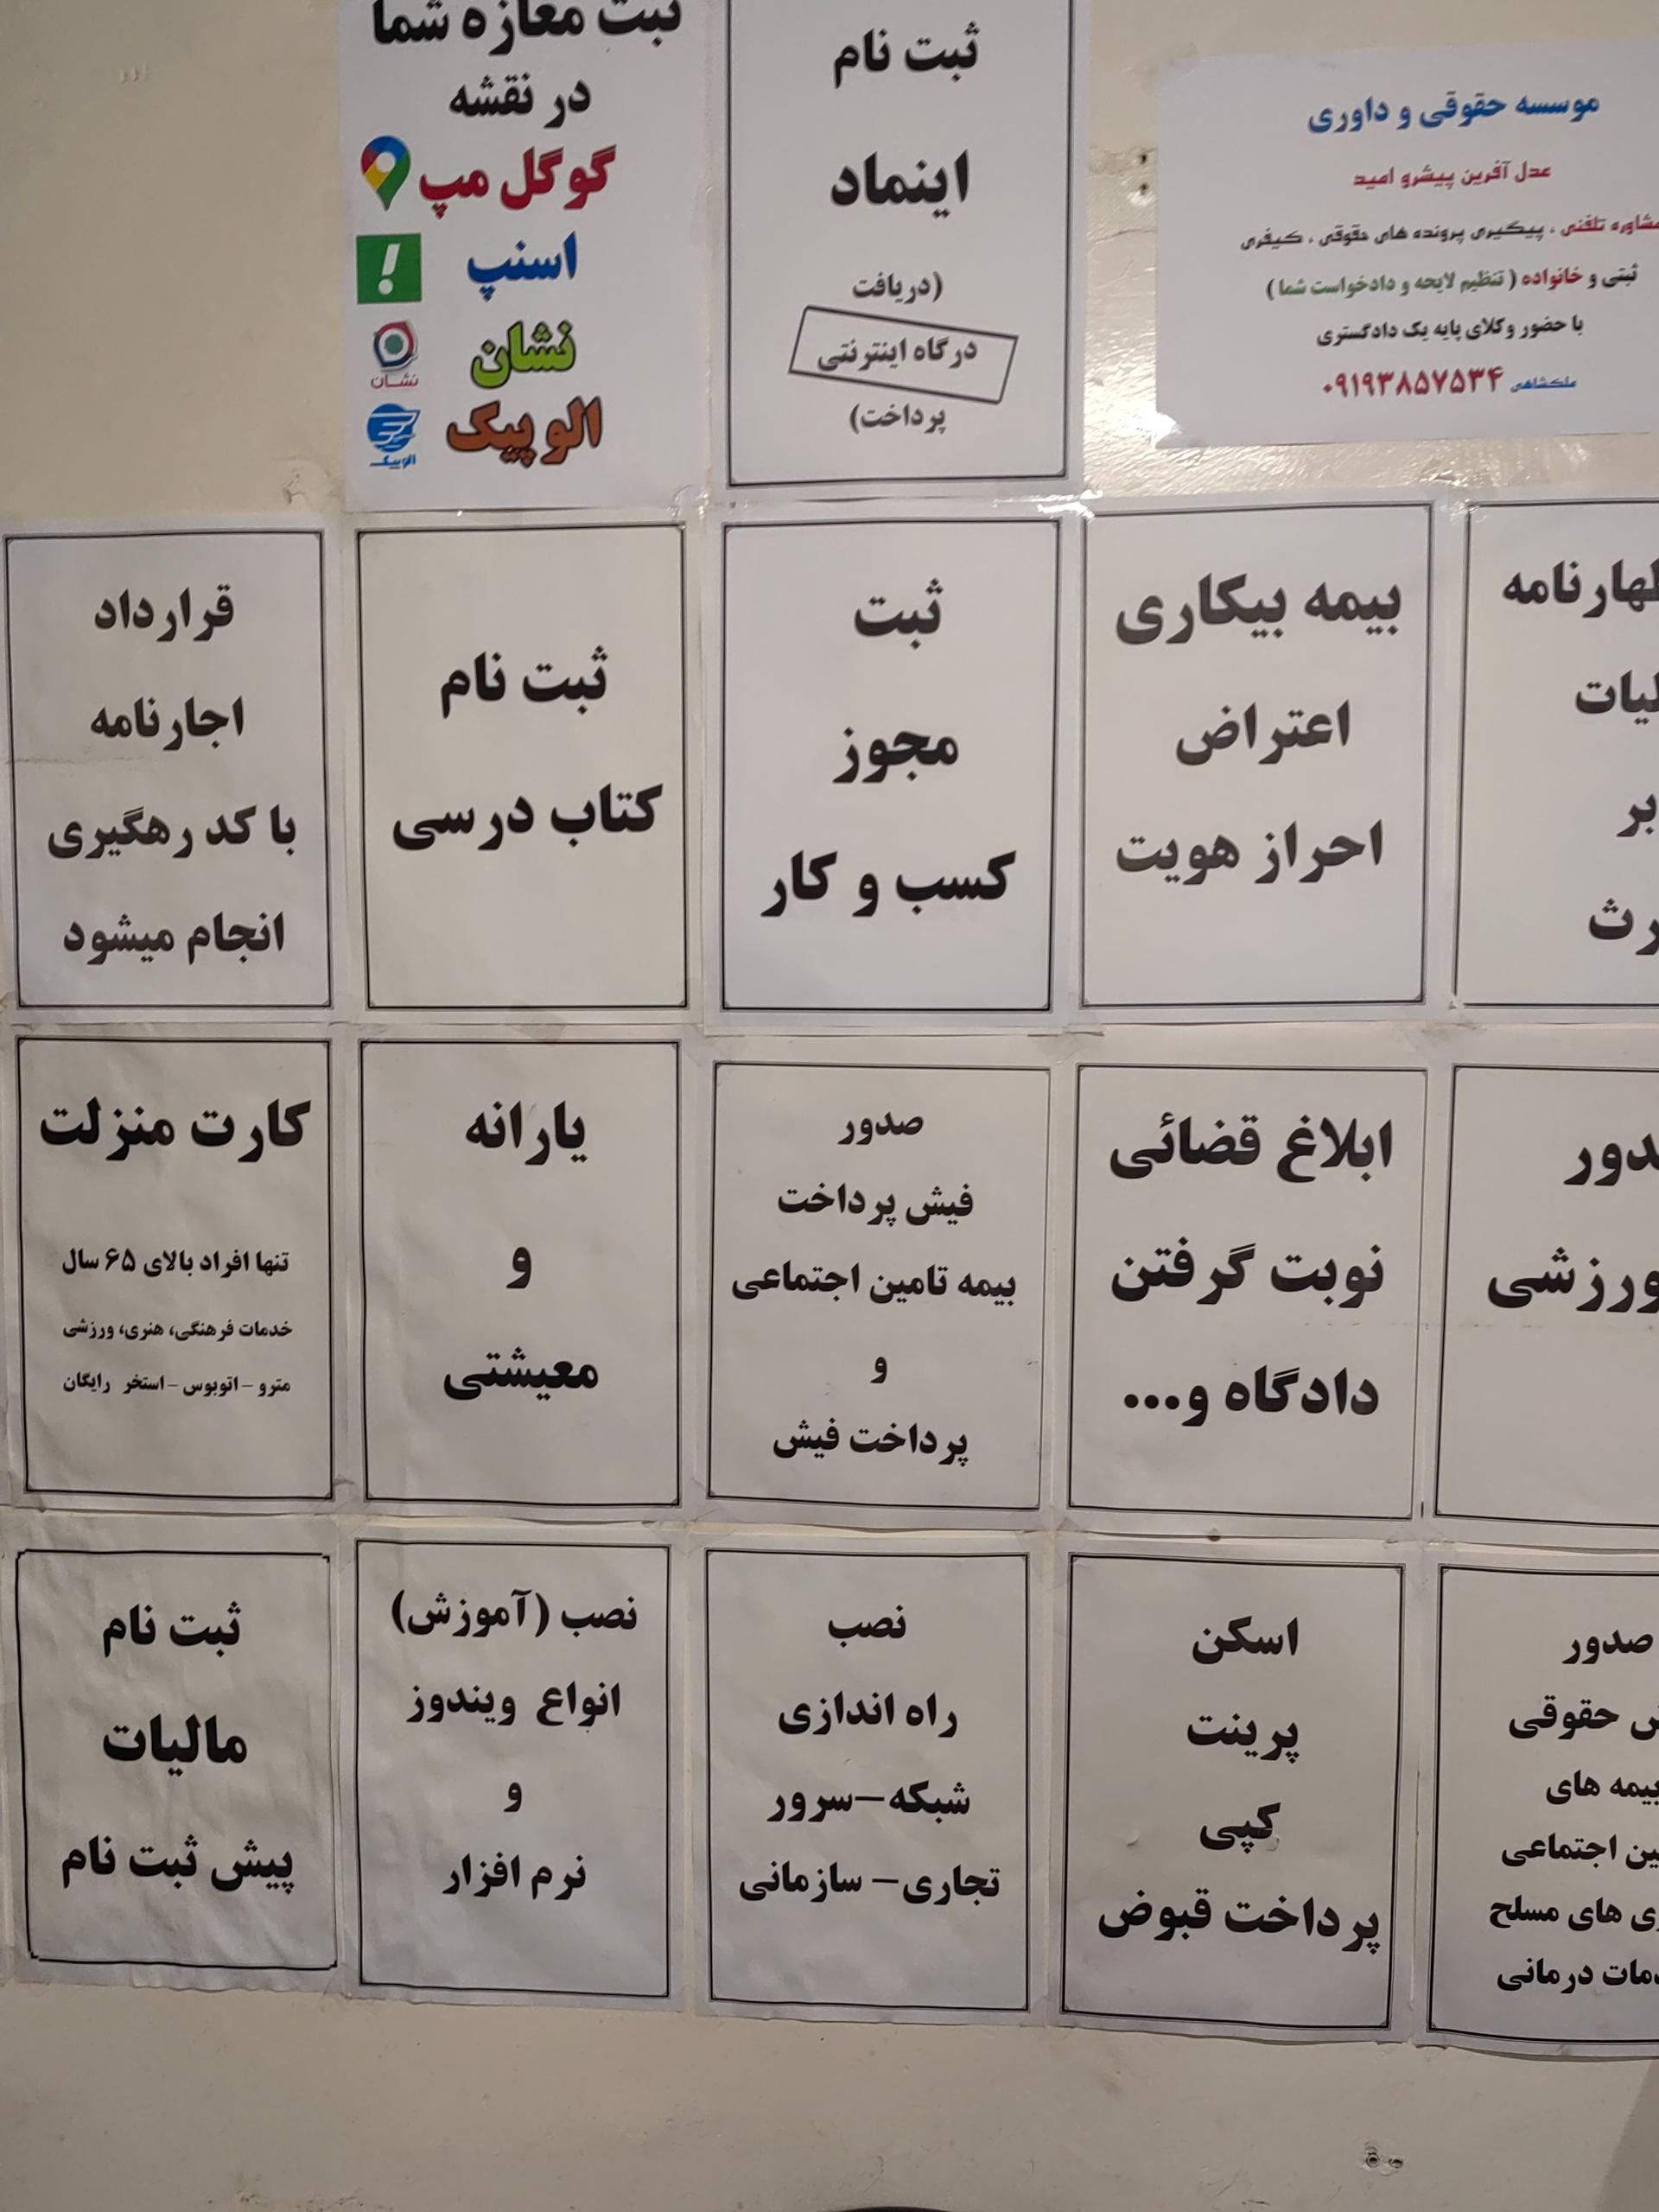 ثبت مغازه شما
در نقشه
گوگل مپ
اسنپ
نشان
نشان
الوپیک
الوپیک
ثبت نام
اینماد
(دریافت
درگاه اینترنتی
پرداخت)
موسسه حقوقی و داوری
عدل آفرین پیشرو امید
تلفنی ، پیگیری پرونده های حقوقی ، کیفری
ثبتی و خانواده ( تنظیم لایحه و دادخواست شما )
با حضور وکلای پایه یک دادگستری
ملکشاهی ۰۹۱۹۳۸۵۷۵۳۴
بر
بیمه بیکاری
اعتراض
احراز هویت
ثبت
مجوز
کسب و کار
ثبت نام
کتاب درسی
قرارداد
اجارنامه
با کد رهگیری
انجام میشود
ورزشی
ابلاغ قضائی
نوبت گرفتن
دادگاه و...
صدور
فیش پرداخت
بیمه تامین اجتماعی
و
پرداخت فیش
یارانه
و
معیشتی
کارت منزلت
تنها افراد بالای ۶۵ سال
خدمات فرهنگی، هنری، ورزشی
مترو - اتوبوس - استخر رایگان
صدور
حقوقی
بیمه های
اجتماعی
های مسلح
درمانی
اسکن
پرینت
کپی
پرداخت قبوض
نصب
راه اندازی
شبکه-سرور
تجاری- سازمانی
نصب (آموزش)
انواع ویندوز
و
نرم افزار
ثبت نام
مالیات
پیش ثبت نام